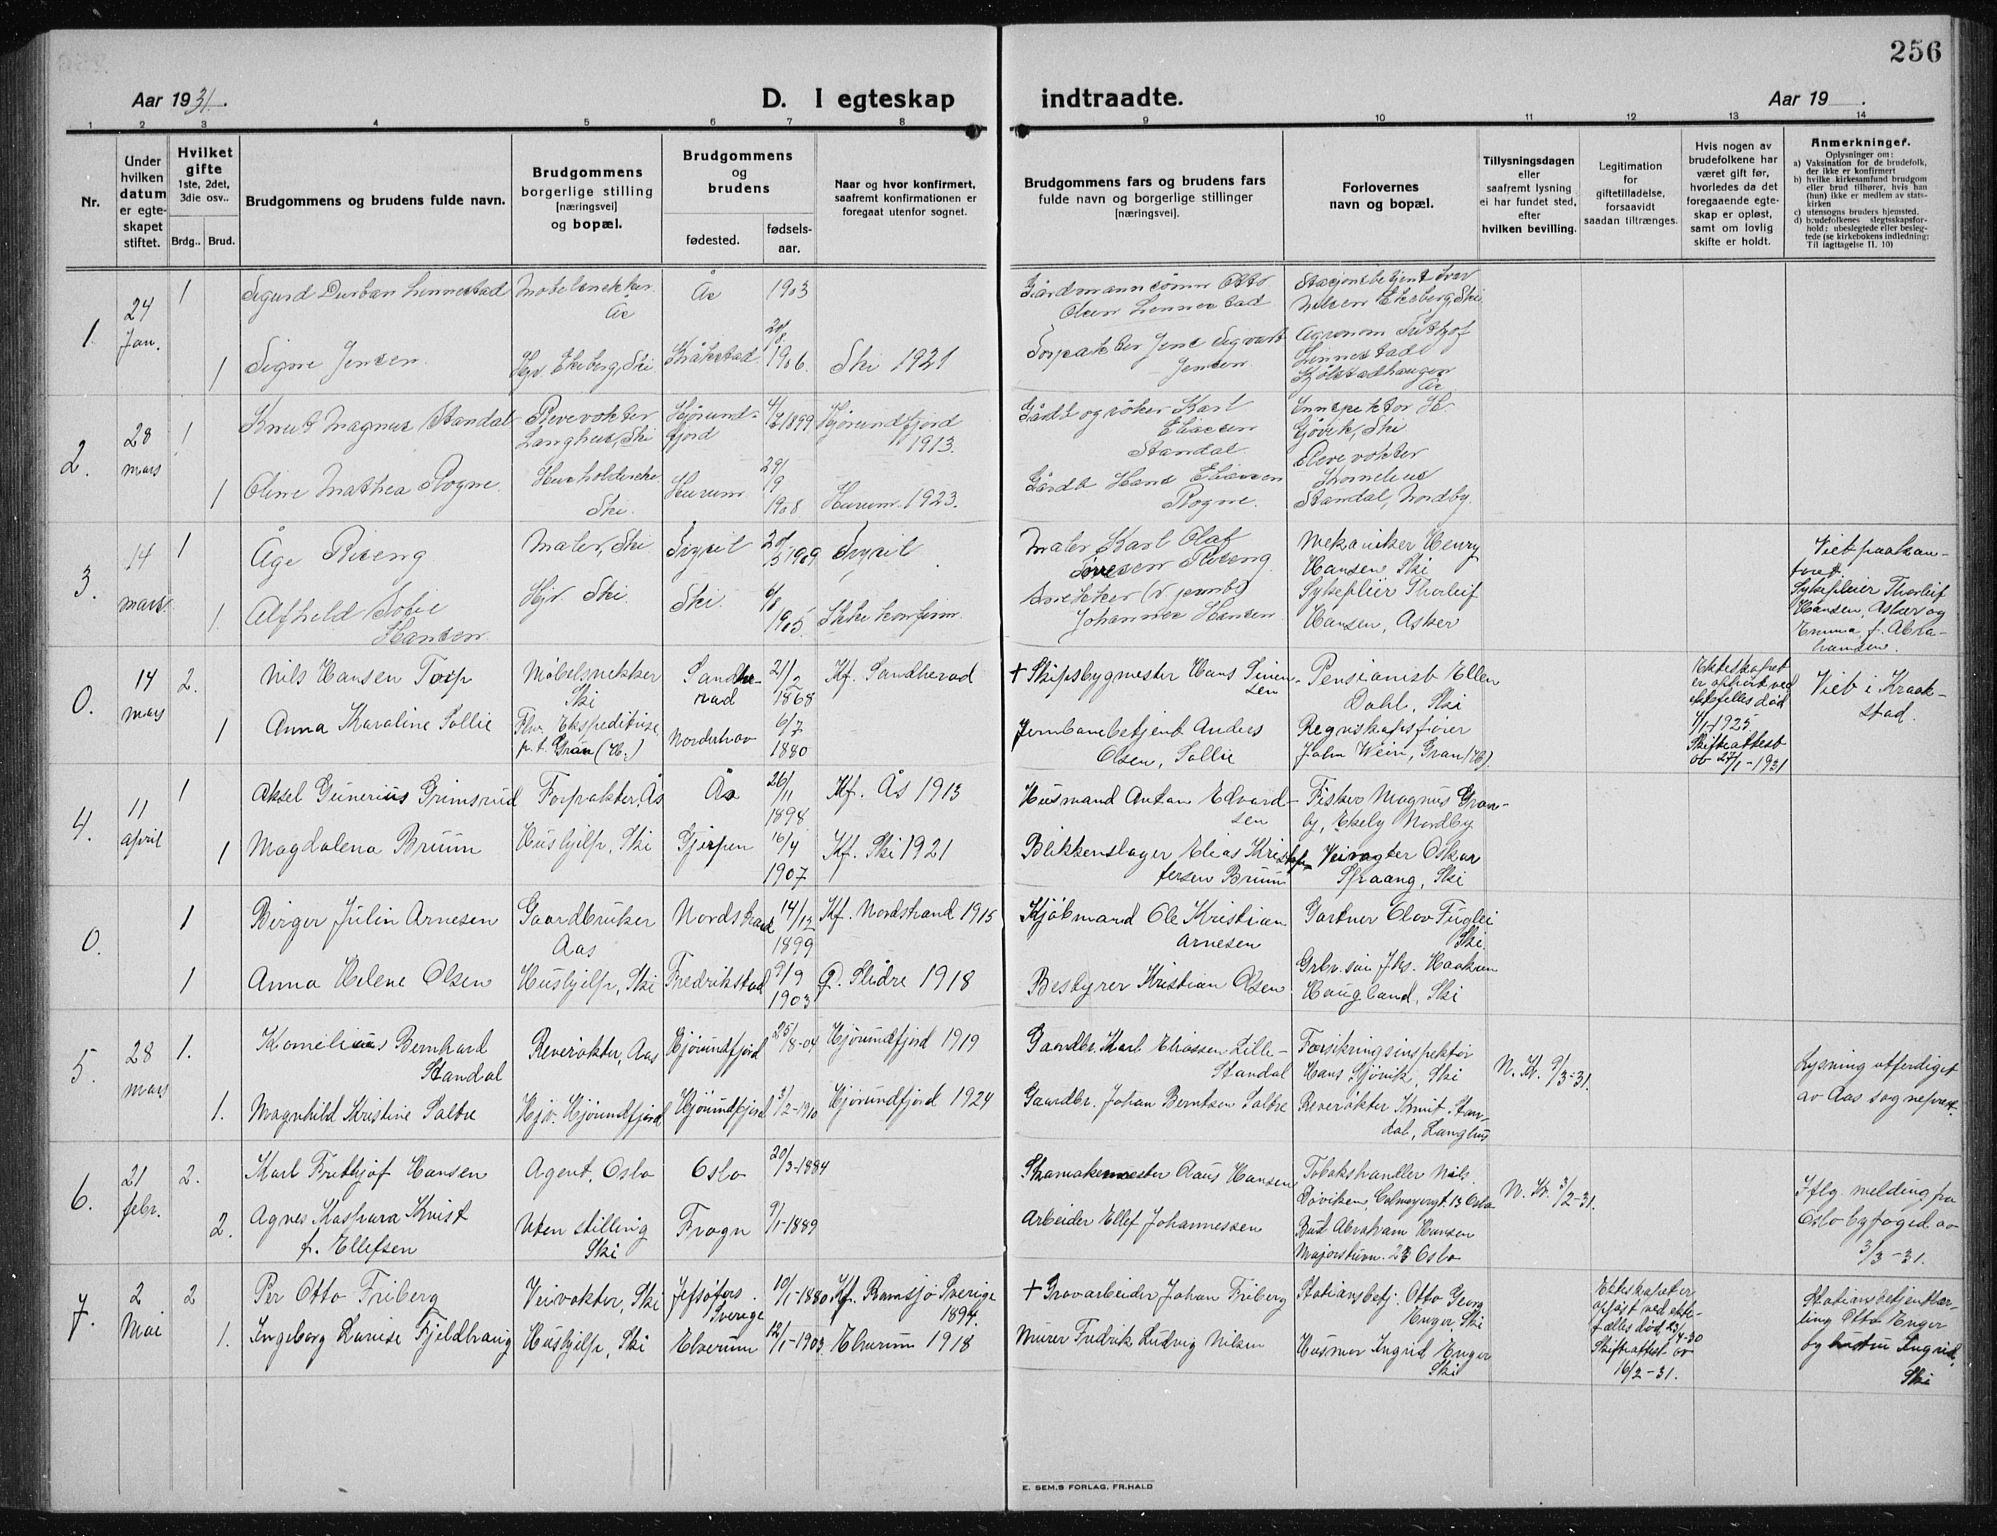 256
Aar 1931.
D. I egteskap indtraadte.
Aar 19 .
1 2 3 4 5 6 7 8 9 10 11 12 13 14
Nr.
Under hvilken datum er egteskapet stiftet.
Hvilket gifte 1ste, 2det, 3die osv..
Brdg.. Brud.
Brudgommens og brudens fulde navn.
Brudgommens borgerlige stilling [næringsvei] og bopæl.
Brudgommens og brudens
fødested. fødselsaar.
Naar og hvor konfirmert, saafremt konfirmationen er foregaat utenfor sognet.
Brudgommens fars og brudens fars fulde navn og borgerlige stillinger [næringsvei].
Forlovernes navn og bopæl.
Tillysningsdagen eller saafremt lysning ei har fundet sted, efter hvilken bevilling.
Legitimation for giftetilladelse, forsaavidt saadan tiltrænges.
Hvis nogen av brudefolkene har været gift før, hvorledes da det foregaaende egteskap er opløst, samt om lovlig skifte er holdt.
Anmerkninger.
Oplysninger om:
a) Vaksination for de brudefolk, der ikke er konfirmert
b) hvilke kirkesamfund brudgom eller brud tilhører, hvis han (hun) ikke er medlem av statskirken
c) utensogns bruders hjemsted.
d) brudefolkenes slegtsskapsforhold: ubeslegtede eller beslegtede (se kirkebokens indledning: Til iagttagelse II. 10)
1. 24 Jan. 1 Sigurd Durban Lennestad Møbelsnekker. Ås Ås 1903
Gårdmannssønn Otto Olsen Lennestad
Stasjonsbetjent Ivar Nilsen Ekeberg, Ski
1 Signe Jensen Hjv. Ekeberg, Ski Kråkstad 20/8 1906 Ski 1921
Forpakter Jens Sigvart Jensen
Agronom Fritjof Lennestad Ås
2. 28 mars 1 Knut Magnus Standal Revevokter Langhus, Ski Hjørundfjord 1899 Hjørundfjord 1913.
Karl Eliassen Standal
Gjövik, Ski
1 Oline Mathea Rogne Husholderske Ski. Hurum 29/9 1908 Hurum 1923.
Gårdb Hans Eliassen Rogne.
Revevokter Kornelius Standal, Nordby.
3. 14 mars 1 Åge Riseng Maler, Ski Trysil 1909 Trysil
Maler Karl Olaf Riseng
Mekaniker Henry Hansen Ski
1. Alfhild Sofie Hansen Hjv Ski. Ski. 1905. Ikke konfirm.
Johannes Hansen
Sykepleier Thorleif Hansen, Asker
Sykepleier Thorleif Hansen, Asker og Emma, f. Abrahamsen.
0. 14 mars 2. Nils Hansen Torp Møbelsnekker Ski Sandherad 21/2 1868 Kf. Sandherad
+ Skipsbygmester Hans Simensen
Pensionist Ellen Dahl, Ski
Ekteskapet er opløst ved ektefelles død 1925. Skifteattest
Viet i Kraakstad.
1 Anna Karoline Sollie Fhv. Ekspeditrise p.t. Gran (H.) Norderhov 6/7 1880
Jernbanebetjent Anders Olsen, Sollie
Regnskapsfører John Wein, Gran (H).
4. 11 april 1 Aksel Gunerius Grimsrud Forpakter, Ås Ås 26/11 1898 Kf. Ås 1913
Husmand Anton Edvardsen
Fisker Magnus Granby, Ekely Nordby
1 Magdalena Bruun Hushjelp, Ski Gjerpen 16/4 1907 Kf. Ski 1921
Blikkenslager Elias Kristoffersen Bruun
Veivogter Oskar Spraang, Ski
0. 1 Birger Julin Arnesen Gaardbruker Aas Nordstrand 14/12 1899 Kf. Nordstrand 1915
Kjøbmand Ole Kristian Arnesen
Gartner Olov Fuglei Ski.
1 Anna Helene Olsen Hushjelp, Ski Fredrikstad 9/9 1903 Ø. Slidre 1918
Bestyrer Kristian Olsen
Haakon Haugland, Ski
5. 28 mars 1. Kornelius Bernhard Standal Reverøkter, Aas Hjørundfjord 25/8-04 Hjørundfjord 1919
Gaardbr. Karl Eliassen Lille-Standal
Forsikringsinspektør Hans Gjövik, Ski
N. Kr. 9/3-31.
Lysning utferdiget av Aas sogneprest.
1. Magnhild Kristine Sætre Hjv. Hjørundfjord Hjørundfjord 3/2-1910 Hjørundfjord 1924
Gaardbr. Johan Berntsen Sætre
Reverøkter Knut Standal, Langhus
6. 21 febr. 2. Karl Fritthjof Hansen Agent, Oslo Oslo 20/3-1884
Skomakermester Aars Hansen
Tobakshandler Nils Döviken, Colmeyergt 13 Oslo
N. Kr. 3/2-31.
Iflg. melding fra Oslo byfoged av 3/3-31.
2. Agnes Kaspara Kvist f. Ellefsen Uten stilling Ski Frogn 9/1-1889
Arbeider Ellef Johannessen
Bud Abraham Hansen Majorstuvn. 23 Oslo
7. 2 Mai 2 Per Otto Friberg Veivokter, Ski Sverige 10/1-1880 Kf. Ramsjö Sverige 1894.
+ Grovarbeider Johan Friberg
Stationsbetj. Otto Georg Enger, Ski
Ekteskapet er opløst ved ektefælles død 23/4-30 Skifteattest av 16/2-31.
Stationsbetjent Otto Enger og hustru Ingrid, Ski
1. Ingeborg Lovise Fjeldhaug Hushjelp, Ski Elverum 12/1-1903. Elverum 1918
Murer Fredrik Ludvig Nilsen
Husmor Ingrid Enger Ski
E. SEM.S FORLAG, FR.HALD